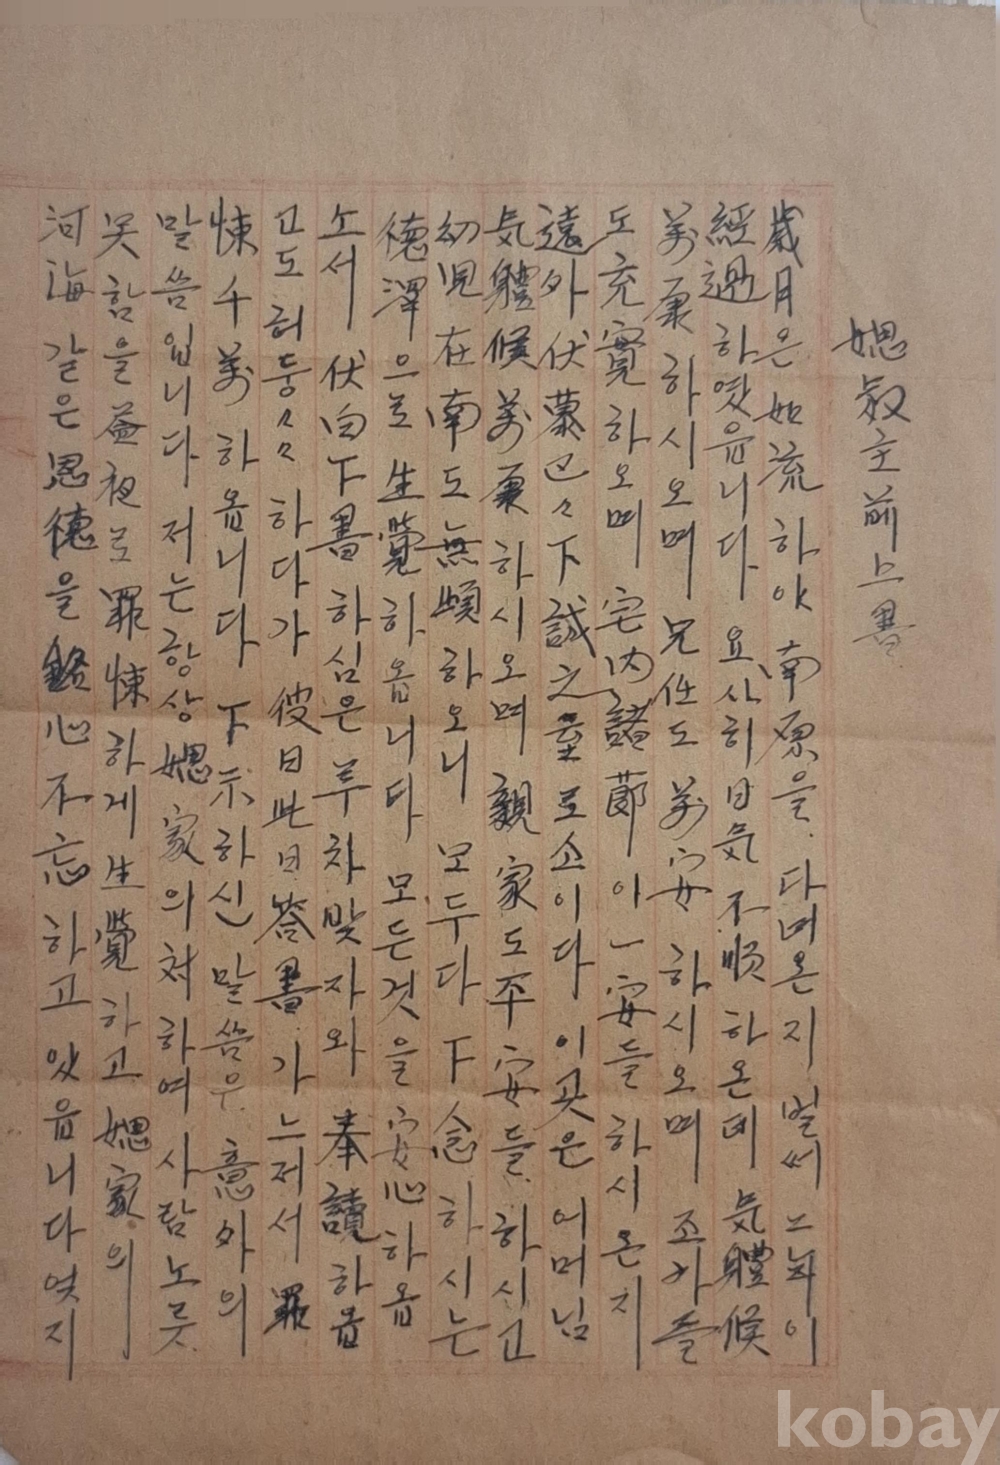 媤叔主前上書
歲月은 如流하야 南原을 다녀온지 벌써
經過하엿슴니다 요사히 日気 不順하온데 気體候
萬康하시오며 兄任도 萬安하시오며 조카들
도 充實하오며 宅内諸節이 一安들 하시온지
遠外伏慕區々 下誠之至로소이다 이곳은 어머님
気體候 萬康하시오며 親家도 平安들 하시고
幼児在南도 無頉하오니 모두다 下念하시는
德澤으로 生覺하옵니다 모든것을 安心하옵
소서 伏白 下書하심은 두차 맛자와 奉讀하옵
고도 허둥々々하다가 彼日此日 答書가 느저서 罪
悚千萬하옵니다 下示하신 말씀우 意外의
말씀입니다 저는 항상 媤家의 対하여 사람노릇
못함을 晝夜로 罪悚하게 生覺하고 媤家의
河海갈은 恩德을 銘心不忘하고 있읍니다 엿지
kobay